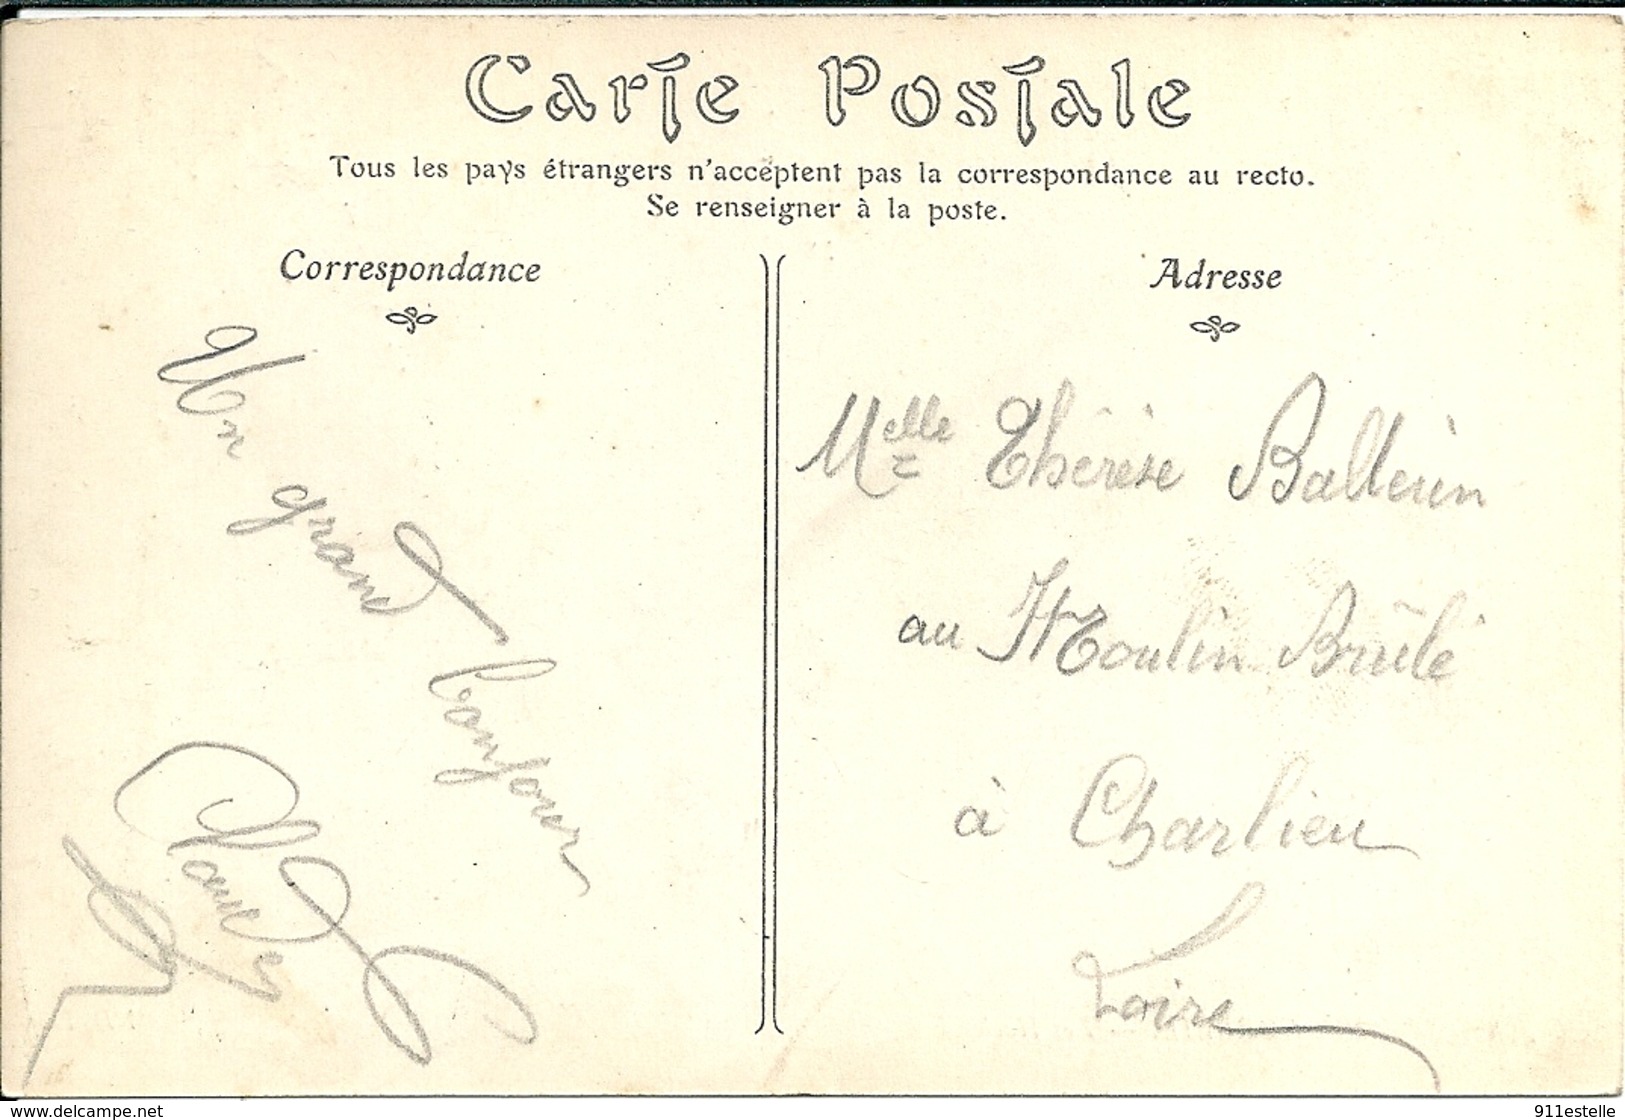 Carte Postale
Tous les pays étrangers n'acceptent pas la correspondance au recto.
Se renseigner à la poste.
Correspondance
Un grand bonjour
Claude
Adresse
Melle Thérèse Ballerin
au Moulin Brûlé
à Charlieu
Loire
www.delcampe.net
911estelle